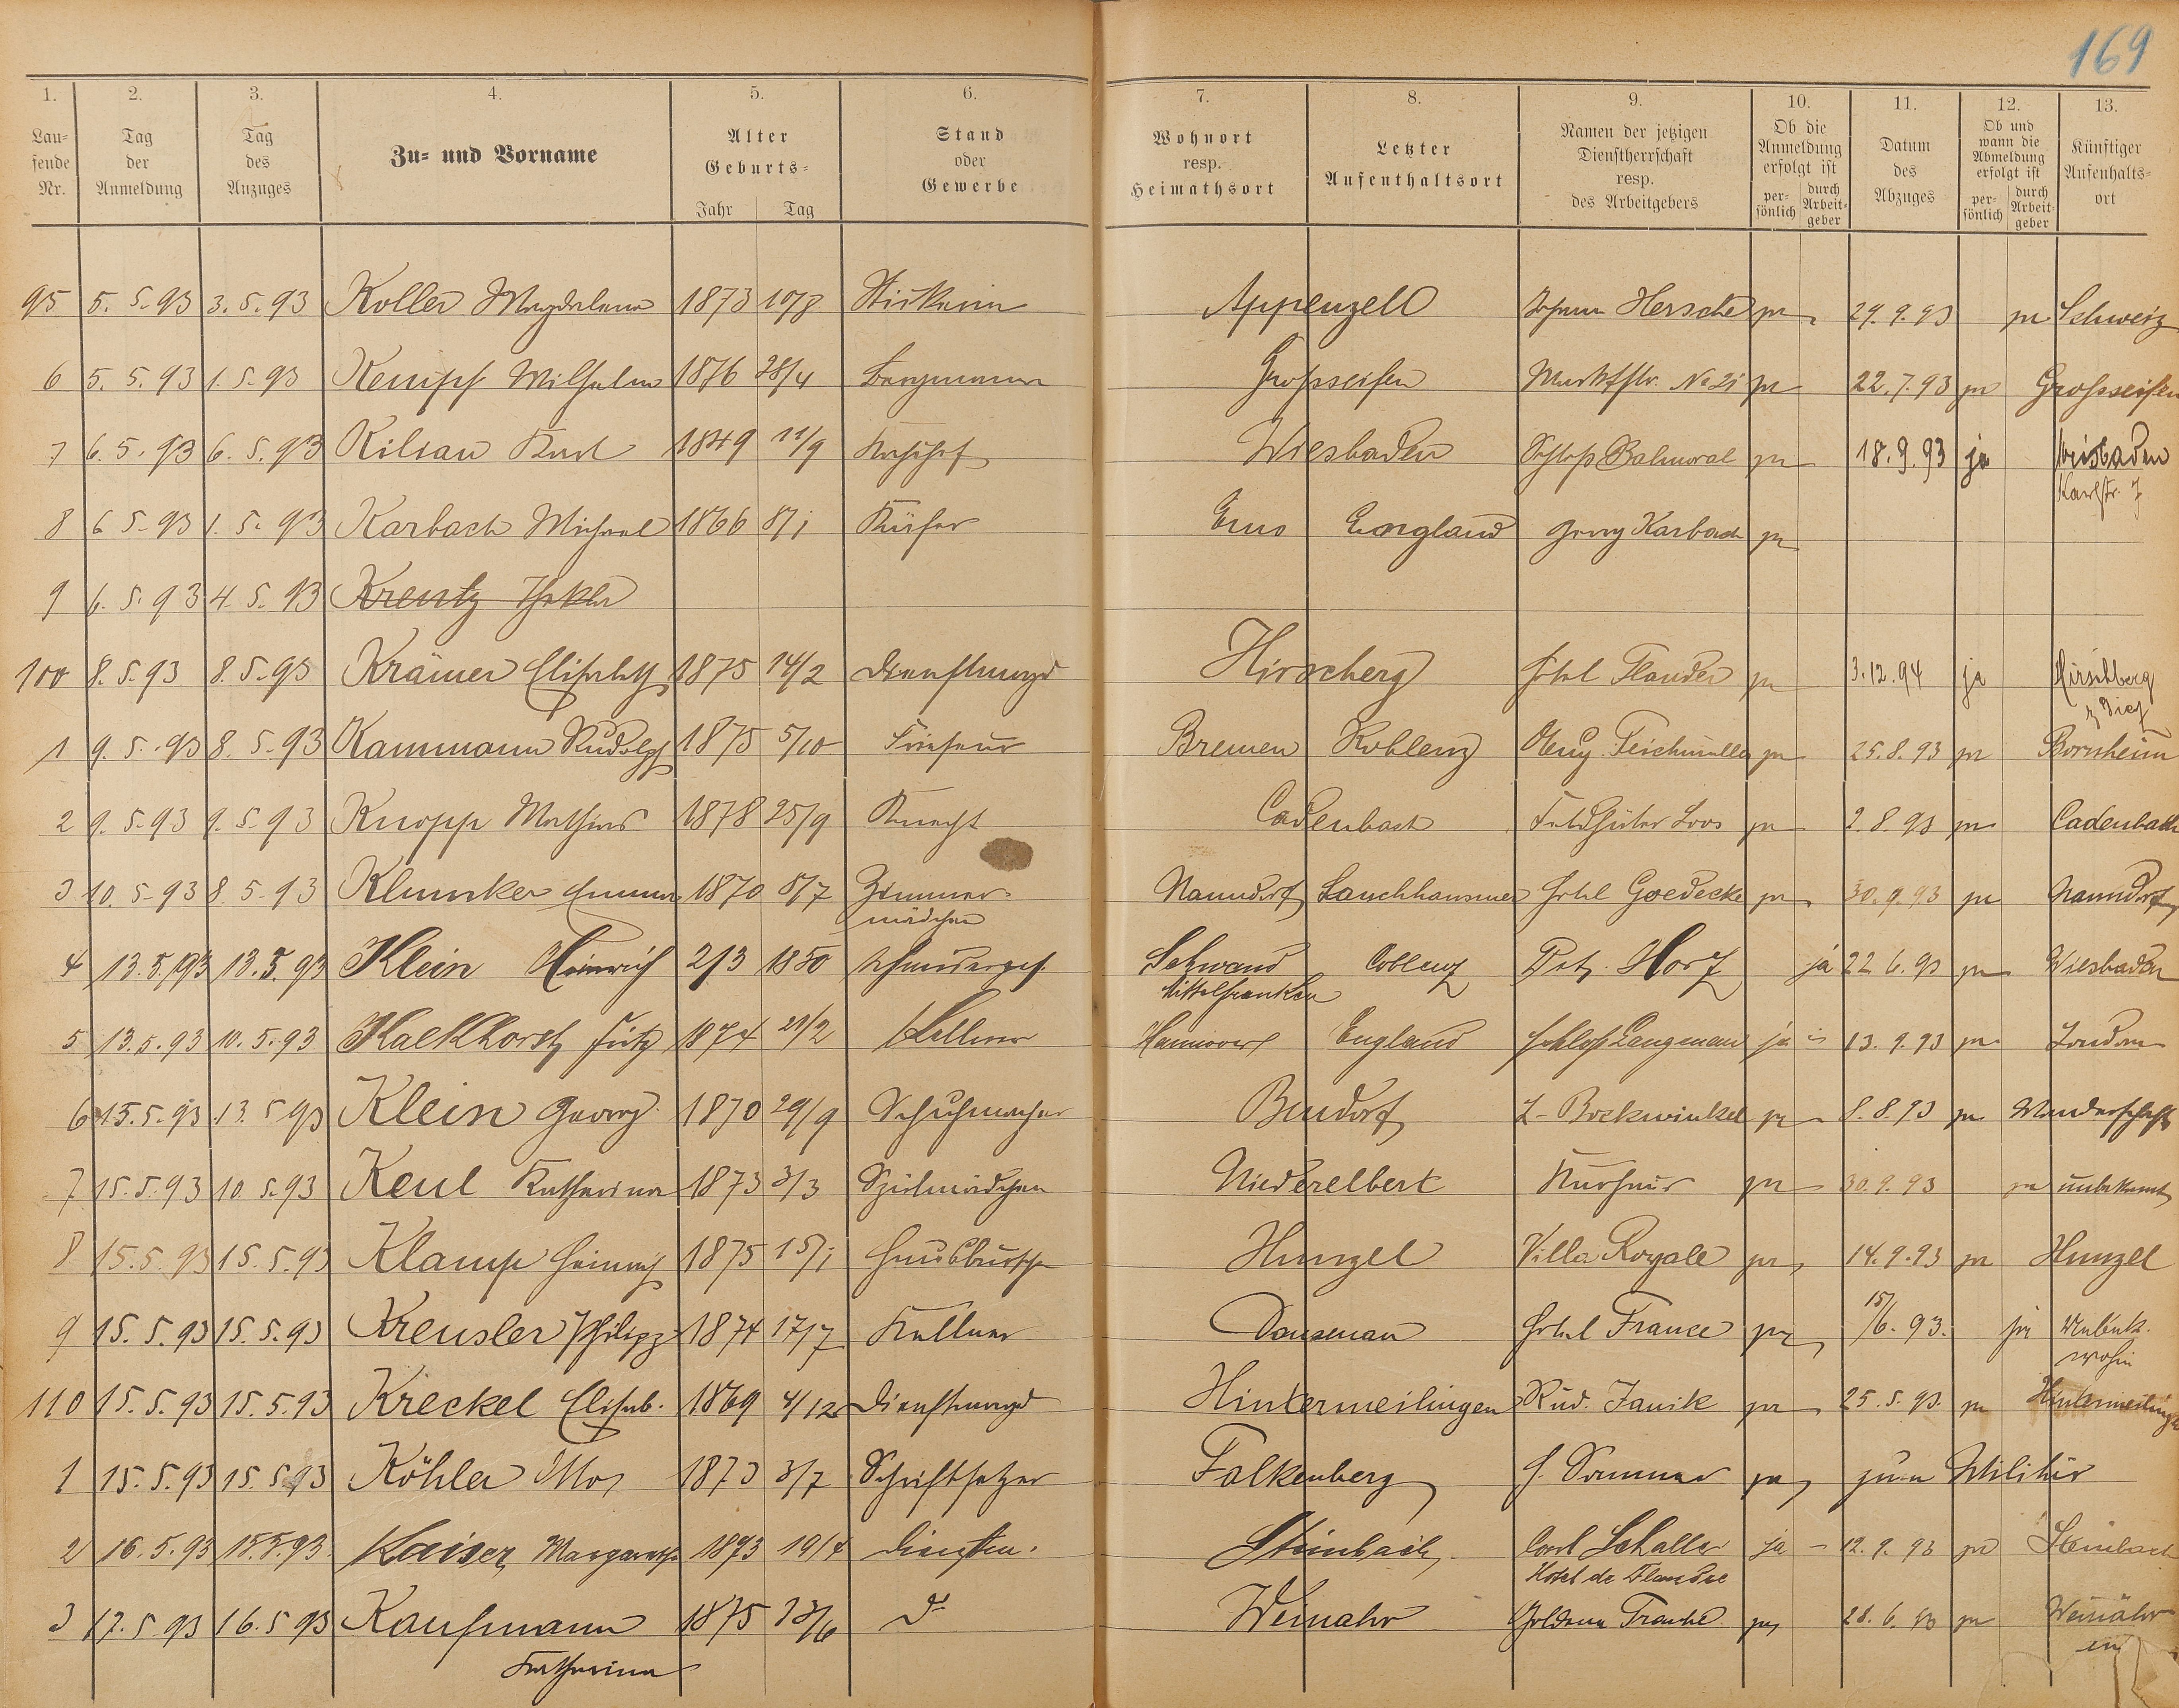 169
1. 2. 3. 4. 5. 6. 7. 8. 9. 10. 11. 12. 13.
Lau=
fende
Nr.
Tag
der
Anmeldung
Tag
des
Anzuges
Zu= und Vorname
Alter
Geburts=
Jahr Tag
Stand
oder
Gewerbe
Wohnort
resp.
Heimathsort
Letzter
Aufenthaltsort
Namen der jetzigen
Dienstherrschaft
resp.
des Arbeitgebers
Ob die
Anmeldung
erfolgt ist
per=
sönlich
durch
Arbeit=
geber
Datum
des
Abzuges
Ob und
wann die
Abmeldung
erfolgt ist
per=
sönlich
durch
Arbeit=
geber
Künftiger
Aufenhalts=
ort
95 5.5.93 3.5.93 Koller Magdalena 1873 10/8 Stickerin Appenzell Johann Hersche ja 29.9.93 ja Schweiz
6 5.5.93 1.5.93 Kempf Wilhelm 1876 28/4 Bergmann Grosseifen Marktstr. No 21 ja 22.7.93 ja Grosseifen
7 6.5.93 6.5.93 Kilian Karl 1849 11/9 Wiesbaden Schloß Balmoral ja 18.9.93 ja Wiesbaden
Karlstr. 7
8 6.5.93 1.5.93 Karbach Michael 1866 8/1 Küfer Ems England Georg Karbach ja
9 6.5.93 4.5.93 Kreutz Thekla
100 8.5.93 8.5.93 Krämer Elisabeth 1875 14/2 Dienstmagd Hirscherg Hotel Flandre ja 3.12.94 ja Hirschberg
b/ Diez
1 9.5.93 8.5.93 Kammann Rudolph 1875 5/10 Friseur Bremen Koblenz Aug. Teichmüller ja 25.8.93 ja Bornheim
2 9.5.93 9.5.93 Knopp Mathias 1878 25/9 Knecht Cadenbach Feldhüter Loos ja 2.8.93 ja Cadenbach
3 10.5.93 8.5.93 Klunker Emma 1870 8/7 Zimmer- Naundorf Hotel Goedecke ja 30.9.93 ja Naundorf
mädchen
4 13.5.93 13.5.93 Klein Heinrich 2/3 1850 Schneiderges. Schwand Coblenz Ptr. Horz ja 22.6.93 ja Wiesbaden
Mittelfranken
5 13.5.93 10.5.93 Kalkhorst Fritz 1874 21/2 Kellner Hannover England Schloß Langenau ja 13.9.93 ja London
6 15.5.93 13.5.93 Klein Georg 1870 29/9 Schuhmacher Bendorf L. Bockwinkel ja 8.8.93 ja Wanderschaft
7 15.5.93 10.5.93 Keul Katharina 1873 3/3 Spülmädchen Niederelbert Kurhaus ja 30.9.93 ja unbekannt
8 15.5.93 15.5.93 Klamp Heinrich 1875 15/1 Hausbursche Hunzel Villa Royale ja 14.9.93 ja Hunzel
9 15.5.93 15.5.93 Kreusler Philipp 1874 17/7 Kellner Dausenau Hotel France ja 15/6.93. ja Unbek.
wohin
110 15.5.93 15.5.93 Kreckel Elisab. 1869 4/12 Dienstmagd Hintermeilingen Rud. Janik ja 25.5.93. ja Hintermeilingen
1 15.5.93 15.5.93 Köhler Otto 1873 3/7 Schriftsetzer Falkenberg H. Sommer ja zum Militär
2 16.5.93 15.5.93 Kaiser Margarethe 1873 19/4 Dienstm. Steinbach Carl Schaller ja 12.9.93 ja Steinbach
Hotel de Flandre
3 17.5.93 16.5.93 Kaufmann 1875 23/6 do Weinahr Goldene Traube ja 28.6.93 ja Weinähr
Katharina